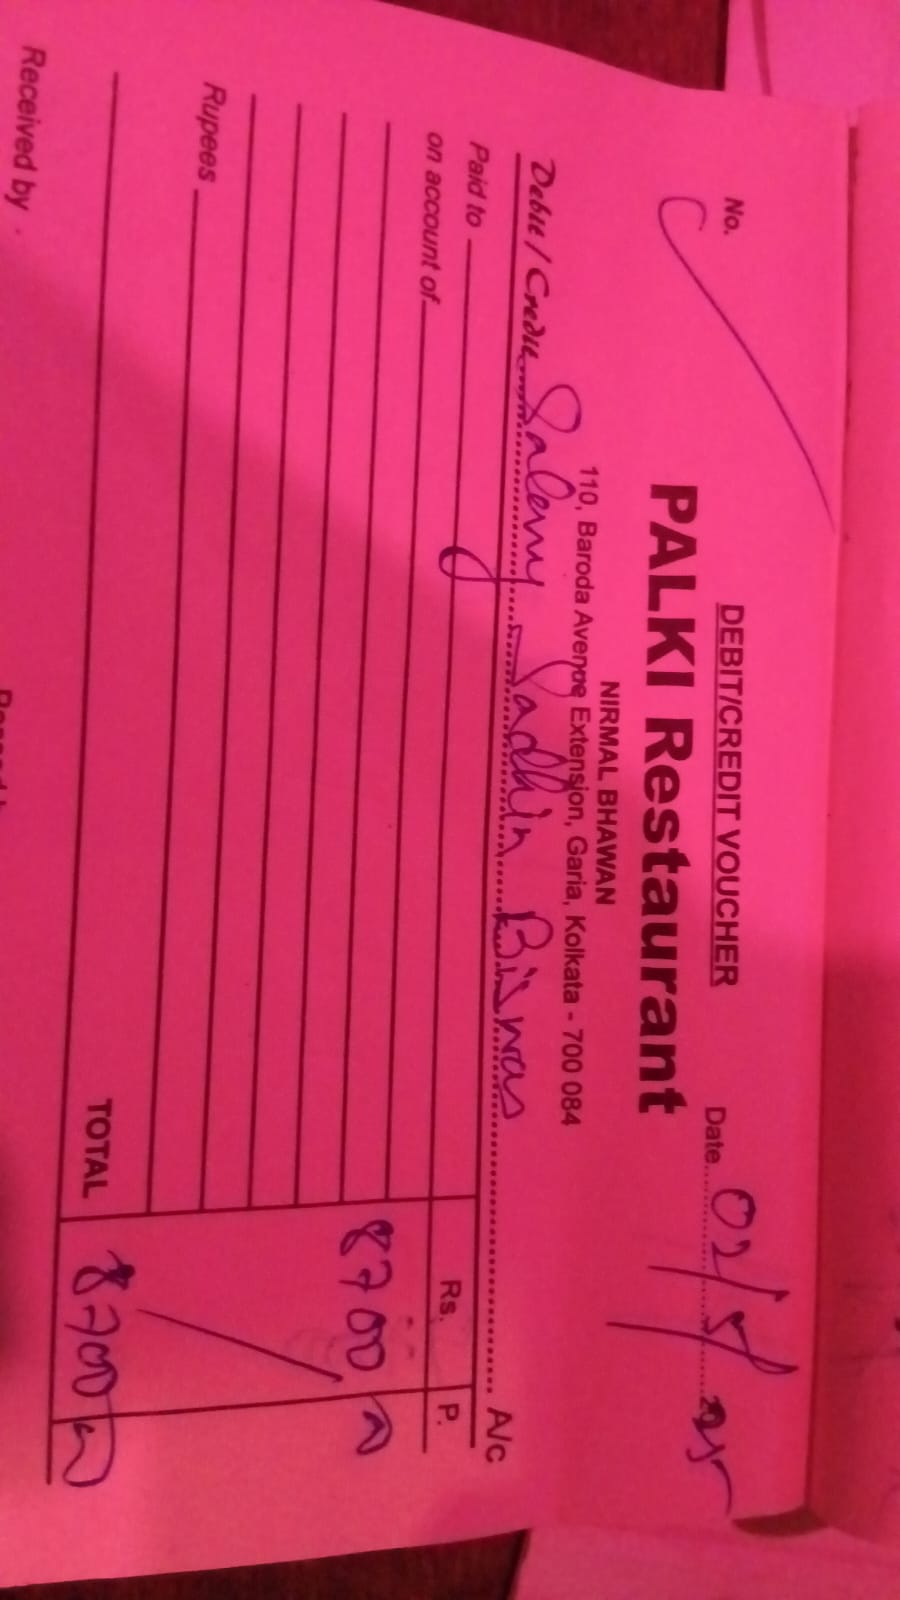 DEBIT/CREDIT VOUCHER
No. Date 02/5/2025
PALKI Restaurant
NIRMAL BHAWAN
110, Baroda Avenue Extension, Garia, Kolkata - 700 084
Debit / Credit Salery Sadhin Biswas A/c
Paid to Rs. P.
on account of
8700
Rupees
TOTAL 8700
Received by